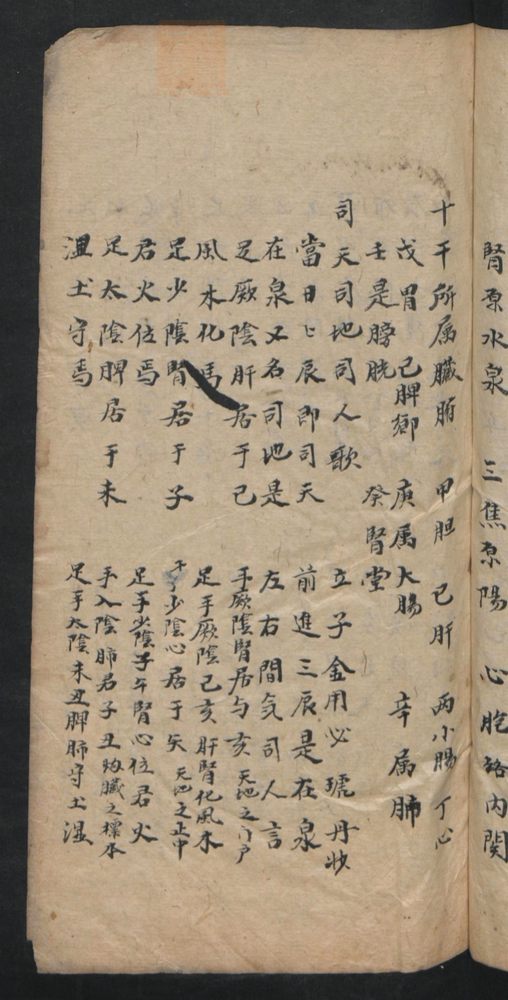 腎原水泉 三焦原陽 心胞絡內関
十干所属臓腑 甲胆 乙肝 丙小腸 丁心
戊胃 己脾鄉 庚属大腸 辛属肺
壬是膀胱 癸腎堂
司天司地司人歌 立子金用必琥丹
當日匕辰即司天 前進三辰是在泉
在泉又名司地是 左右間気司人言
足厥陰肝居于巳 手厥陰腎居与亥 天地之门户
風木化焉 足手厥陰巳亥肝腎化風木
足少陰腎居于子 手少陰心居于矢 天地之正中
君火位焉 足手少陰子午腎心位君火
足太陰脾居于未 手入陰肺君子丑 臓之標本
温土守焉 足手太陰未丑脾肺守土湿